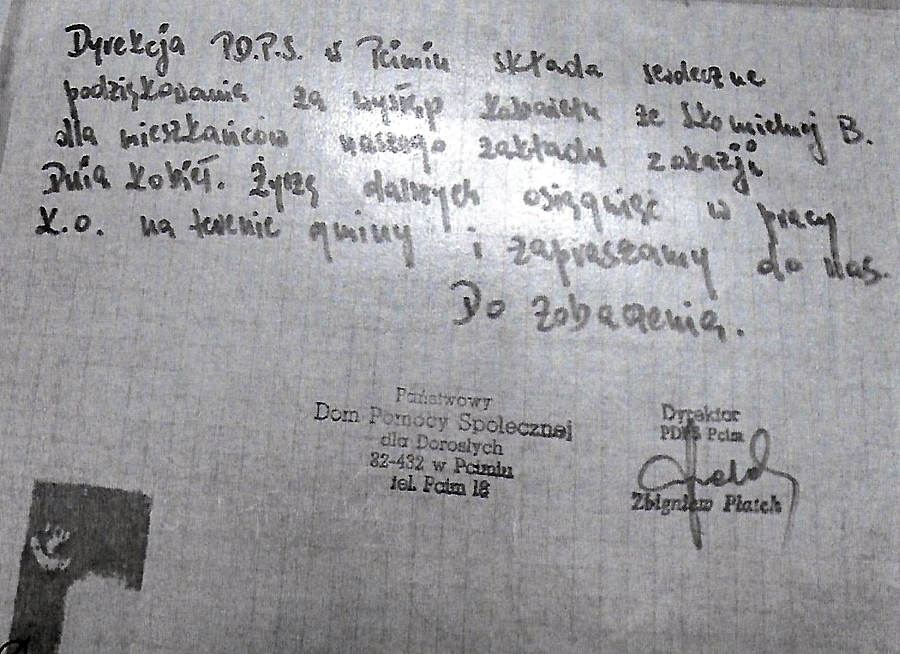 Dyrekcja P.D.P.S. w Pcimiu składa serdeczne
podziękowania za występ kabaretu ze Skomielnej B.
dla mieszkańców naszego zakładu z okazji
Dnia Kobiet. Życzę dalszych osiągnięć w pracy
K.O. na terenie gminy i zapraszamy do nas.
Do zobaczenia.
Państwowy
Dom Pomocy Społecznej
dla Dorosłych
32-432 w Pcimiu
tel. Pcim 18
Dyrektor
PDPS Pcim
Zbigniew Piątek